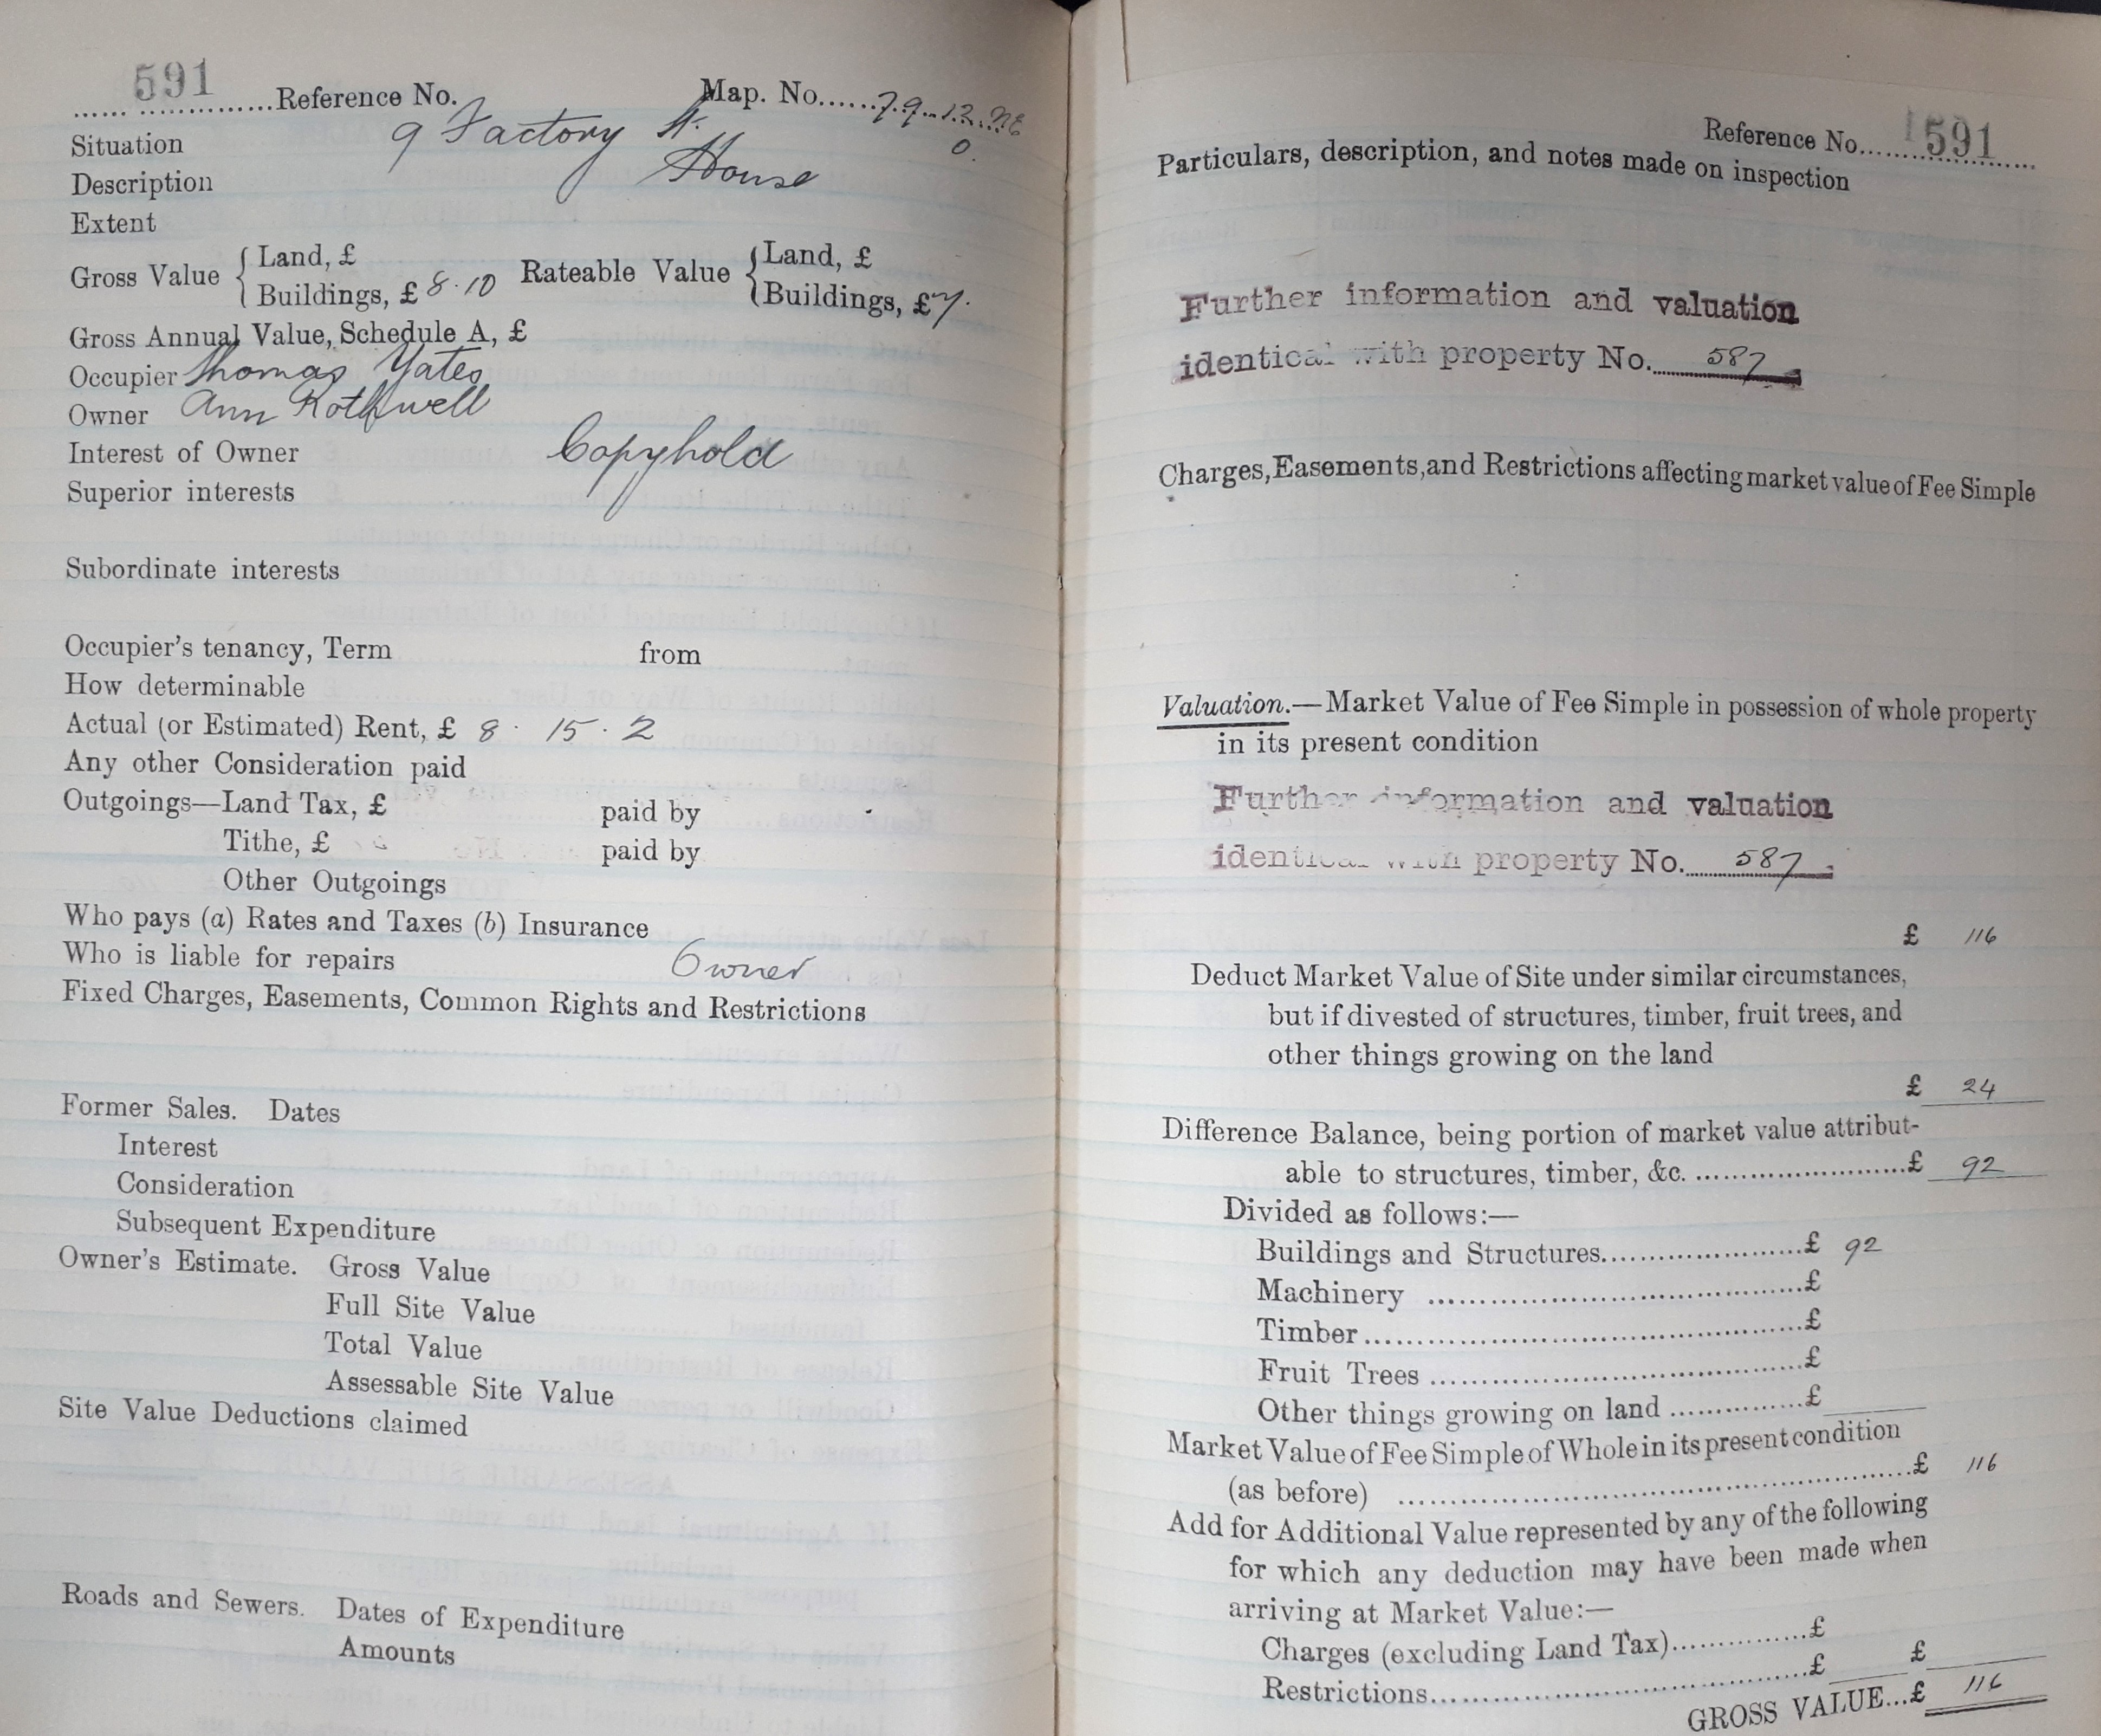 591 Reference No. Map. No. 79.12.NE
0.
Situation 9 Factory St.
Description House
Extent
Gross Value { Land, £
Buildings, £ 8.10 Rateable Value { Land, £
Buildings, £ 7.
Gross Annual Value, Schedule A, £
Occupier Thomas Yates
Owner Ann Rothwell
Interest of Owner Copyhold
Superior interests
Subordinate interests
Occupier's tenancy, Term from
How determinable
Actual (or Estimated) Rent, £ 8 . 15 . 2
Any other Consideration paid
Outgoings—Land Tax, £ paid by
Tithe, £ paid by
Other Outgoings
Who pays (a) Rates and Taxes (b) Insurance
Who is liable for repairs Owner
Fixed Charges, Easements, Common Rights and Restrictions
Former Sales. Dates
Interest
Consideration
Subsequent Expenditure
Owner's Estimate. Gross Value
Full Site Value
Total Value
Assessable Site Value
Site Value Deductions claimed
Roads and Sewers. Dates of Expenditure
Amounts
Reference No. 591
Particulars, description, and notes made on inspection
Further information and valuation
identical with property No. 587
Charges, Easements, and Restrictions affecting market value of Fee Simple
Valuation.—Market Value of Fee Simple in possession of whole property
in its present condition
Further information and valuation
identical with property No. 587
£ 116
Deduct Market Value of Site under similar circumstances,
but if divested of structures, timber, fruit trees, and
other things growing on the land
£ 24
Difference Balance, being portion of market value attribut-
able to structures, timber, &c. £ 92
Divided as follows:—
Buildings and Structures £ 92
Machinery £
Timber £
Fruit Trees £
Other things growing on land £
Market Value of Fee Simple of Whole in its present condition
(as before) £ 116
Add for Additional Value represented by any of the following
for which any deduction may have been made when
arriving at Market Value:—
Charges (excluding Land Tax) £
Restrictions £ £
GROSS VALUE...£ 116